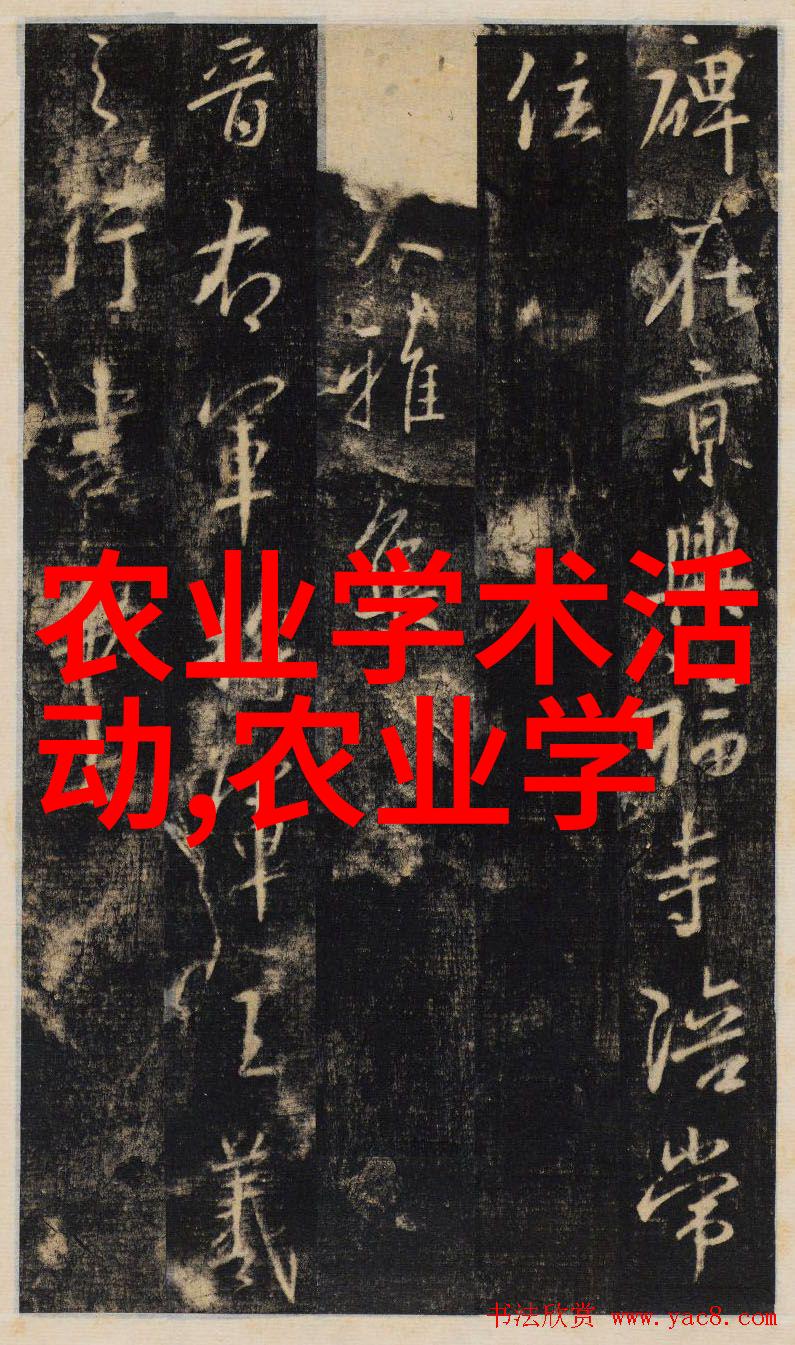 碑在京興福寺陪常
住
雅
晋右軍将軍王羲
之行書
农业学术活
动,农业学
书法欣赏 www.yac8.com